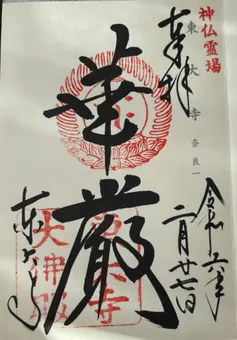 神仏霊場
東大寺
奈良一
奉拝
華厳
令和六年
二月廿七日
東大寺
東大寺
大佛殿